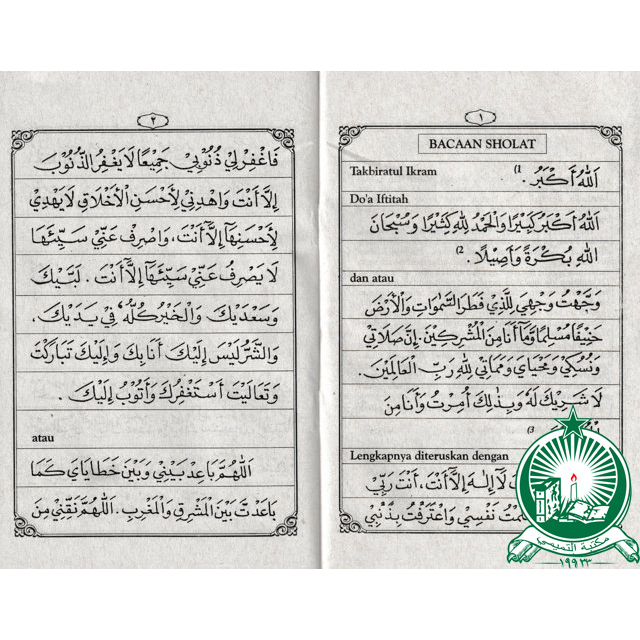 ١
BACAAN SHOLAT
Takbiratul Ikram
اَللّٰهُ أَكْبَرُ . (1
Do'a Iftitah
اَللّٰهُ أَكْبَرُ كَبِيْرًا وَالْحَمْدُ لِلّٰهِ كَثِيْرًا وَسُبْحَانَ
اللّٰهِ بُكْرَةً وَأَصِيْلًا . (2
dan atau
وَجَّهْتُ وَجْهِيَ لِلَّذِيْ فَطَرَ السَّمٰوَاتِ وَالْأَرْضَ
حَنِيْفًا مُسْلِمًا وَمَآ أَنَا مِنَ الْمُشْرِكِيْنَ. إِنَّ صَلَاتِيْ
وَنُسُكِيْ وَمَحْيَايَ وَمَمَاتِيْ لِلّٰهِ رَبِّ الْعَالَمِيْنَ.
لَا شَرِيْكَ لَهُ وَبِذٰلِكَ أُمِرْتُ وَأَنَا مِنَ
(3
Lengkapnya diteruskan dengan
لَآ إِلٰهَ إِلَّآ أَنْتَ، أَنْتَ رَبِّيْ
نَفْسِيْ وَاعْتَرَفْتُ بِذَنْبِيْ
٢
فَاغْفِرْ لِيْ ذُنُوْبِيْ جَمِيْعًا لَا يَغْفِرُ الذُّنُوْبَ
إِلَّا أَنْتَ وَاهْدِنِيْ لِأَحْسَنِ الْأَخْلَاقِ لَا يَهْدِيْ
لِأَحْسَنِهَا إِلَّآ أَنْتَ، وَاصْرِفْ عَنِّيْ سَيِّئَهَا
لَا يَصْرِفُ عَنِّيْ سَيِّئَهَآ إِلَّآ أَنْتَ . لَبَّيْكَ
وَسَعْدَيْكَ وَالْخَيْرُ كُلُّهُ فِيْ يَدَيْكَ.
وَالشَّرُّ لَيْسَ إِلَيْكَ أَنَا بِكَ وَإِلَيْكَ تَبَارَكْتَ
وَتَعَالَيْتَ أَسْتَغْفِرُكَ وَأَتُوْبُ إِلَيْكَ .
atau
اَللّٰهُمَّ بَاعِدْ بَيْنِيْ وَبَيْنَ خَطَايَايَ كَمَا
بَاعَدْتَ بَيْنَ الْمَشْرِقِ وَالْمَغْرِبِ. اَللّٰهُمَّ نَقِّنِيْ مِنَ
مكتبة التميمي